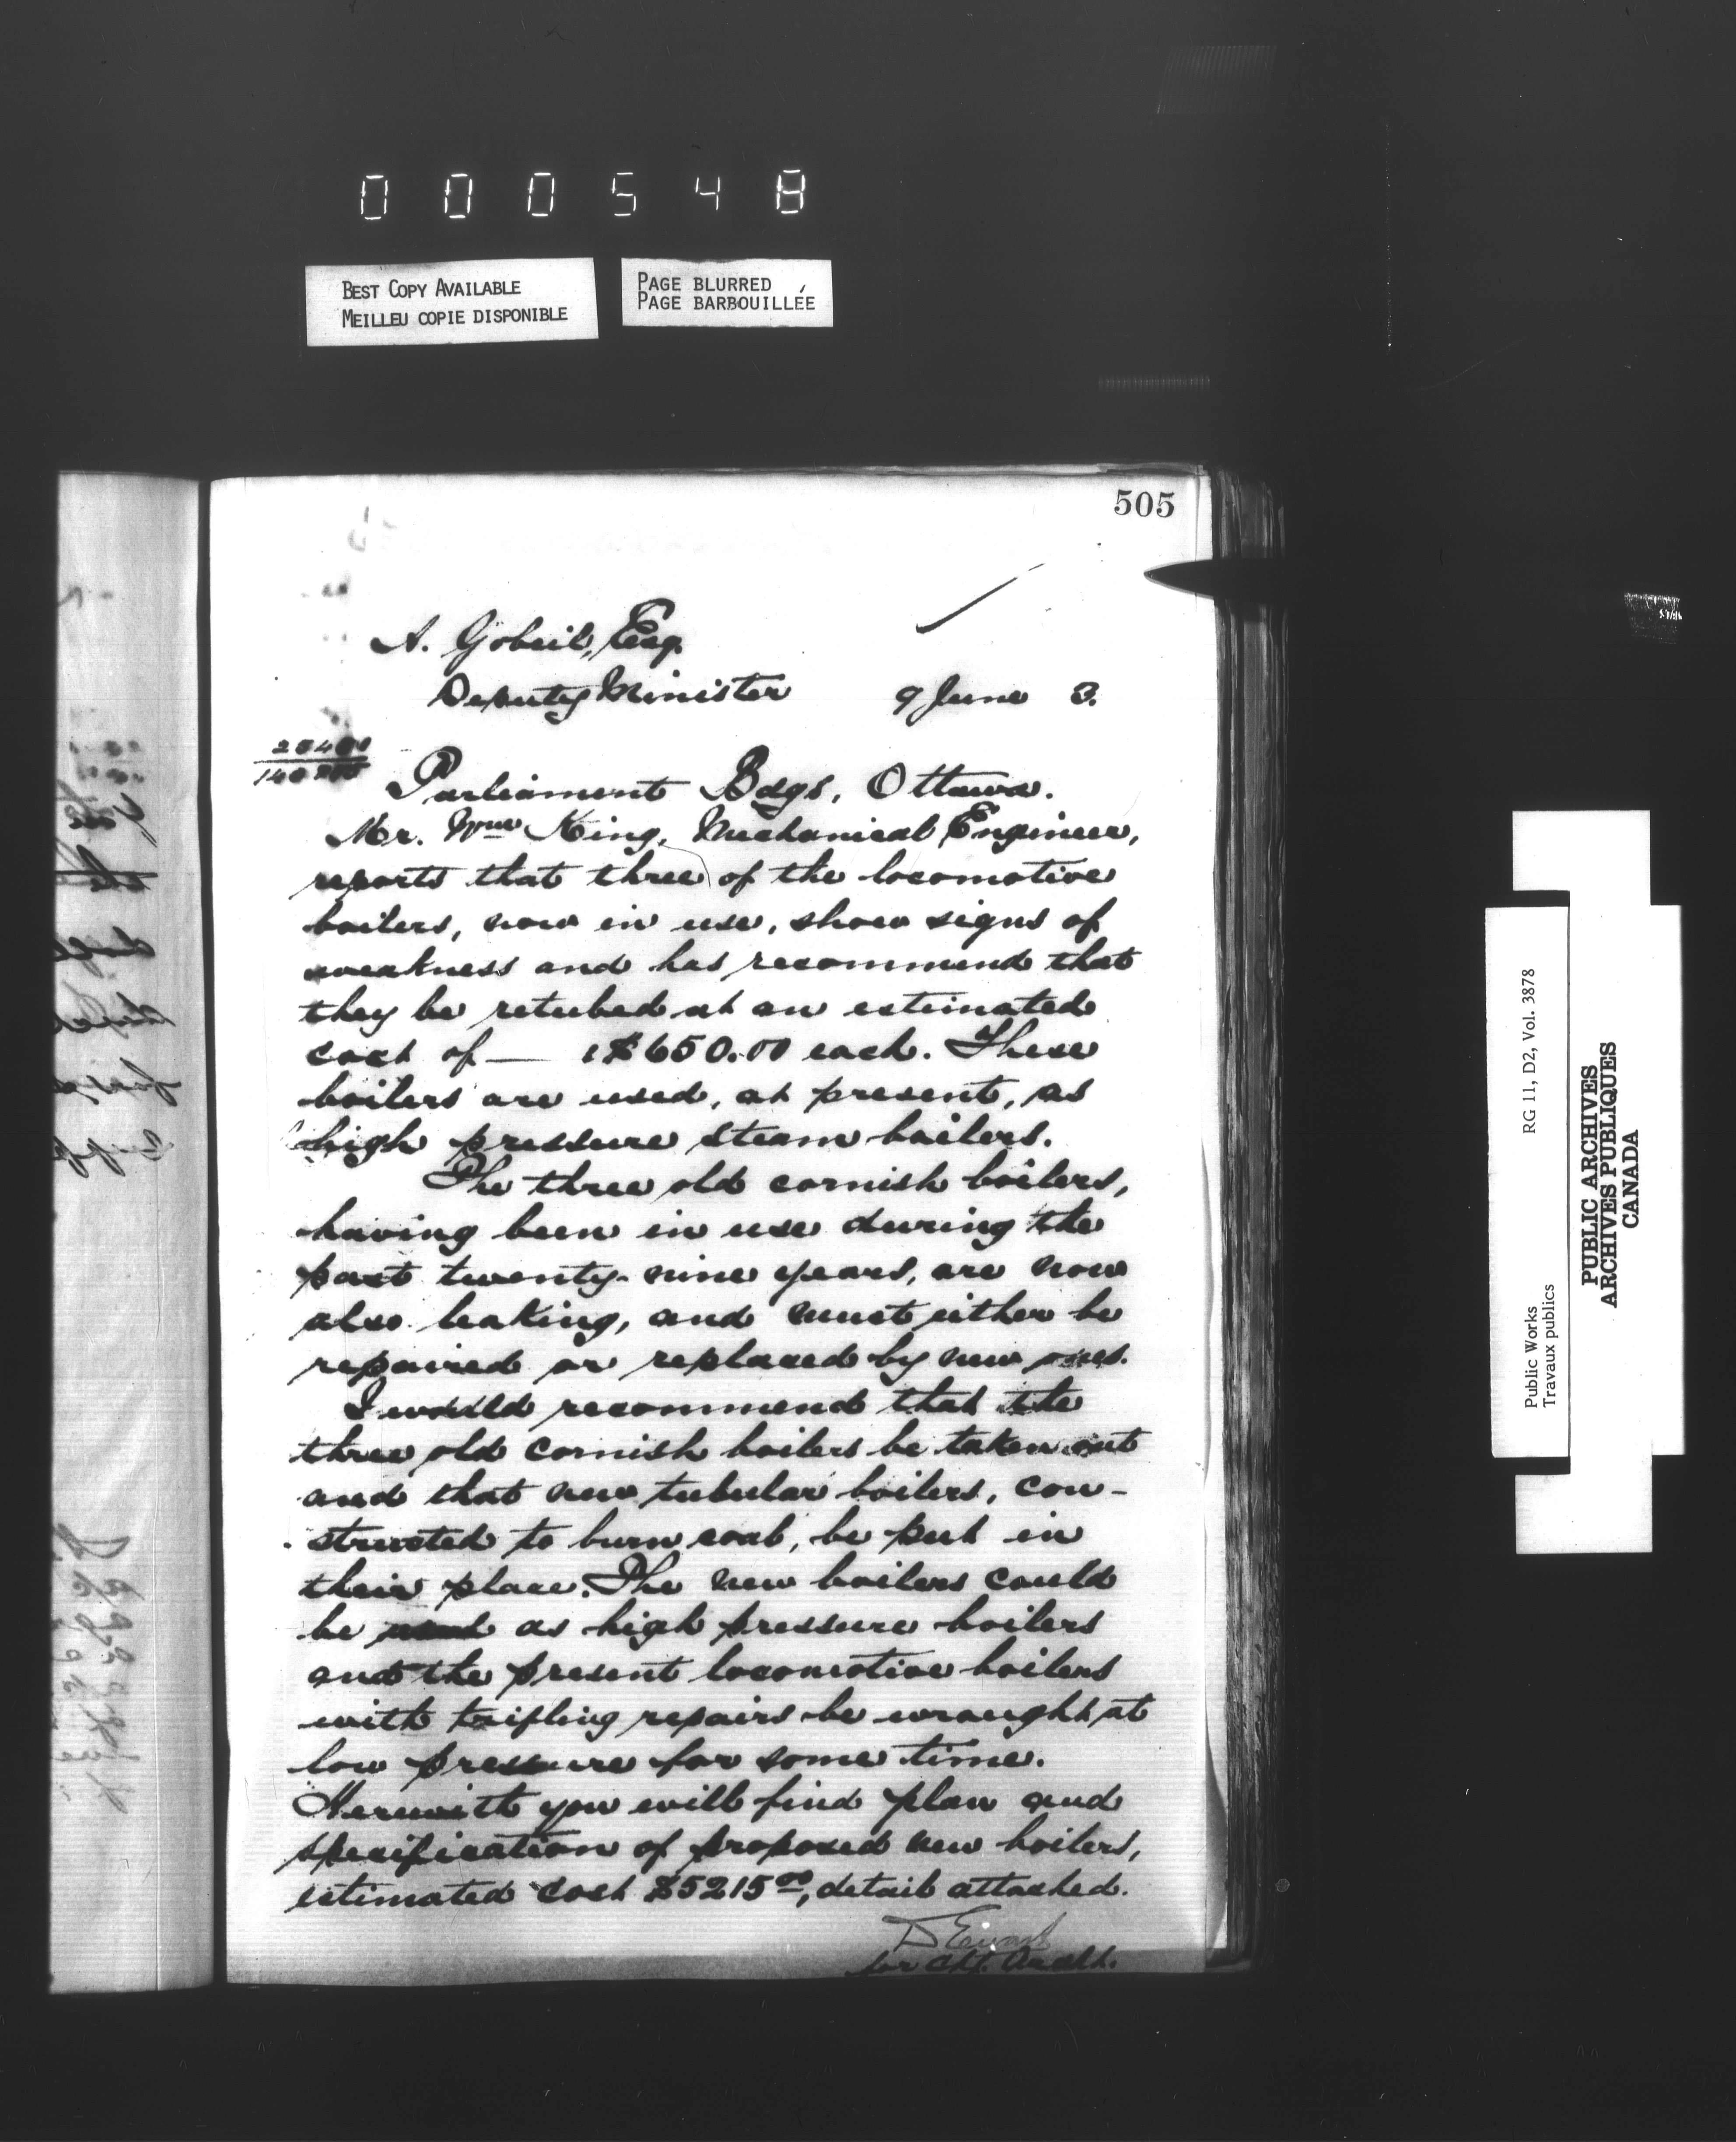 000548
BEST COPY AVAILABLE
MEILLEU COPIE DISPONIBLE
PAGE BLURRED
PAGE BARBOUILLÉE
505
A. Gobeil, Esq.
Deputy Minister 9 June 3.
Parliament Bdgs, Ottawa.
Mr. Wm King, Mechanical Engineer,
reports that three of the locomotive
boilers, now in use, show signs of
weakness and has recommend that
they be retubed at an estimated
cost of — $650.00 each. These
boilers are used, at present, as
high pressure steam boilers.
The three old cornish boilers,
having been in use during the
past twenty-nine years, are now
also leaking, and must either be
repaired or replaced by new ones.
I would recommend that the
three old Cornish boilers be taken out
and that new tubular boilers, con-
structed to burn coal, be put in
their place. The new boilers could
be used as high pressure boilers
and the present locomotive boilers
with trifling repairs be wrought at
low pressure for some time.
Herewith you will find plan and
specification of proposed new boilers,
estimated cost $5215.00, detail attached.
D Ewart
for Cht. Archt.
Public Works
Travaux publics
RG 11, D2, Vol. 3878
PUBLIC ARCHIVES
ARCHIVES PUBLIQUES
CANADA